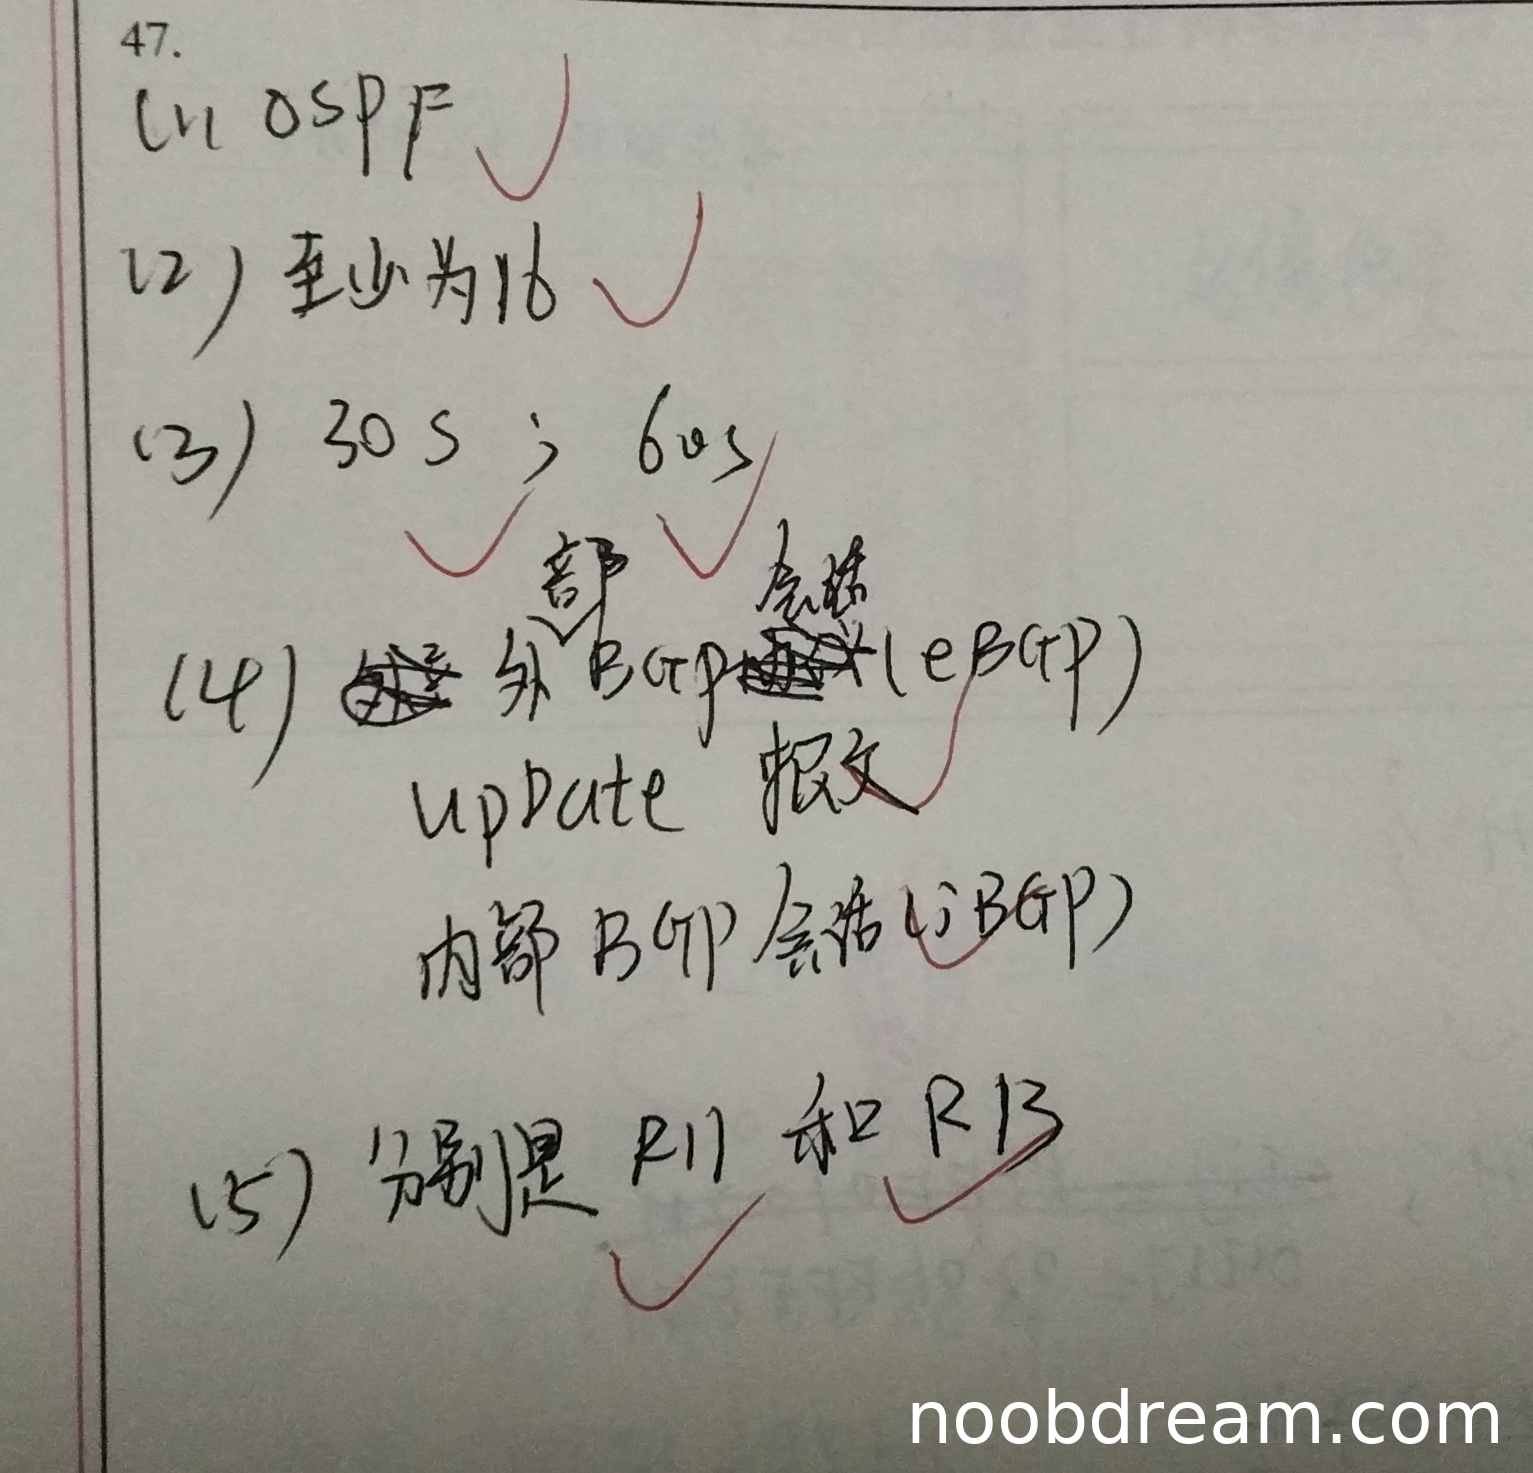 47.
(1) OSPF
(2) 至少为16
(3) 30s ; 60s
(4) 外部BGP会话(eBGP)
upDate 报文
内部BGP会话(iBGP)
(5) 分别是 R11 和 R13
noobdream.com